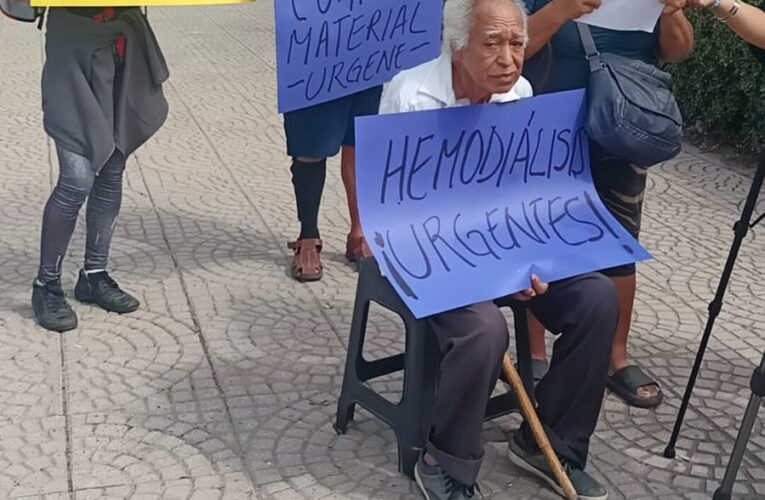 MATERIAL
-URGENE-
HEMODIÁLISIS
¡URGENTES!